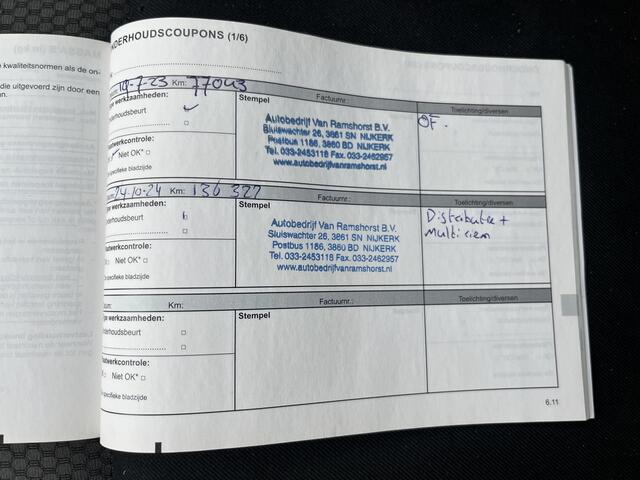 NDERHOUDSCOUPONS (1/6)
e kwaliteitsnormen als de on-
die uitgevoerd zijn door een
n.
19-7-23 Km: 77043
Factuurnr.:
Toelichting/diversen
ge werkzaamheden:
derhoudsbeurt
Stempel
Autobedrijf Van Ramshorst B.V.
Sluiswachter 26, 3861 SN NIJKERK
Postbus 1186, 3860 BD NIJKERK
Tel. 033-2453118 Fax. 033-2462957
www.autobedrijfvanramshorst.nl
OF.
atwerkcontrole:
Niet OK*
specifieke bladzijde
24-10-24 Km: 136 327
Factuurnr.:
Toelichting/diversen
ge werkzaamheden:
derhoudsbeurt
Stempel
Autobedrijf Van Ramshorst B.V.
Sluiswachter 26, 3861 SN NIJKERK
Postbus 1186, 3860 BD NIJKERK
Tel. 033-2453118 Fax. 033-2462957
www.autobedrijfvanramshorst.nl
Distributie +
Multiriem
atwerkcontrole:
OK Niet OK*
specifieke bladzijde
tum: Km:
Factuurnr.:
Toelichting/diversen
ge werkzaamheden:
derhoudsbeurt
Stempel
atwerkcontrole:
Niet OK*
specifieke bladzijde
6.11